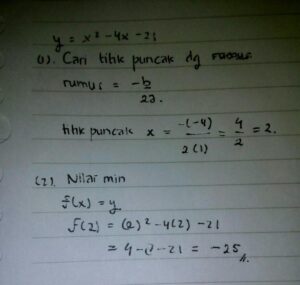 y = x² - 4x - 21
(1). Cari titik puncak dg
rumus = -b
2a.
titik puncak x = -(-4) = 4 = 2.
2(1) 2
(2). Nilai min
f(x) = y
f(2) = (2)² - 4(2) - 21
= 4 - 8 - 21 = -25